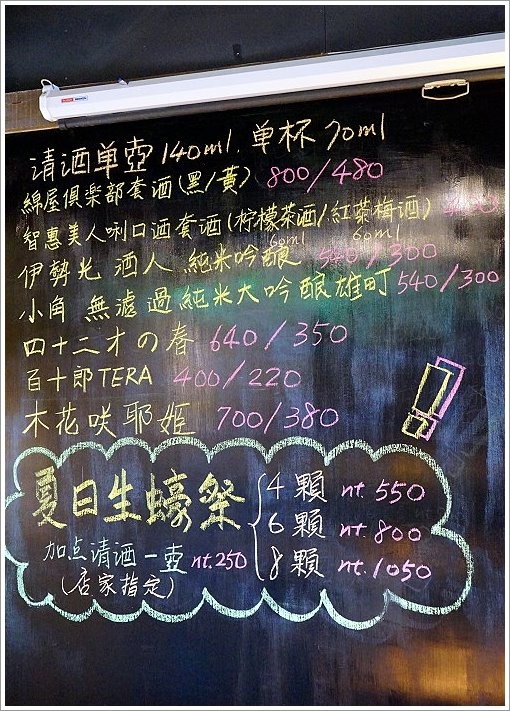 清酒单壺140ml. 单杯70ml
綿屋俱楽部套酒(黑/黃) 800/480
智惠美人唎口酒套酒(柠檬茶酒/紅茶梅酒)
60ml 60ml
伊勢光 酒人 純米吟釀 540/300
小角 無濾過純米大吟釀雄町 540/300
四十二才の春 640/350
百十郎TERA 400/220
木花咲耶姬 700/380
!
夏日生蠔祭
4顆 nt.550
6顆 nt.800
8顆 nt.1050
加点清酒一壺 nt.250
(店家指定)